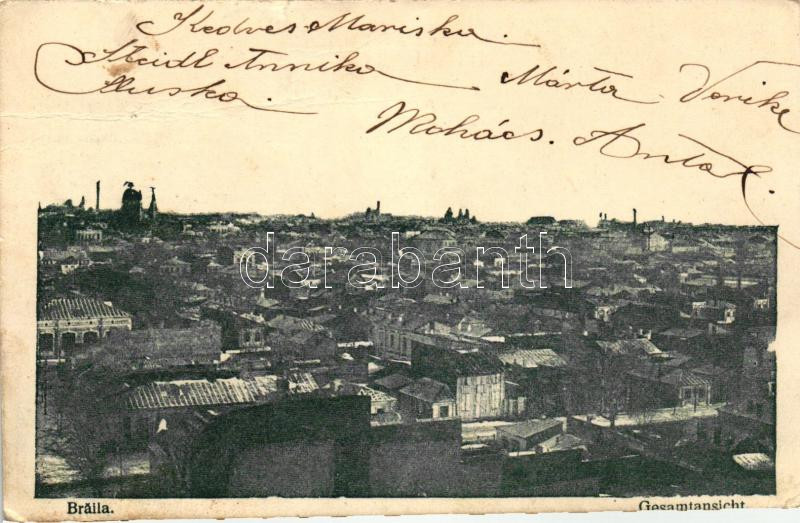 Kedves Mariska
Steidl Annika Márta Verike
Auska
Mohács. Antal
darabanth
Brăila. Gesamtansicht.